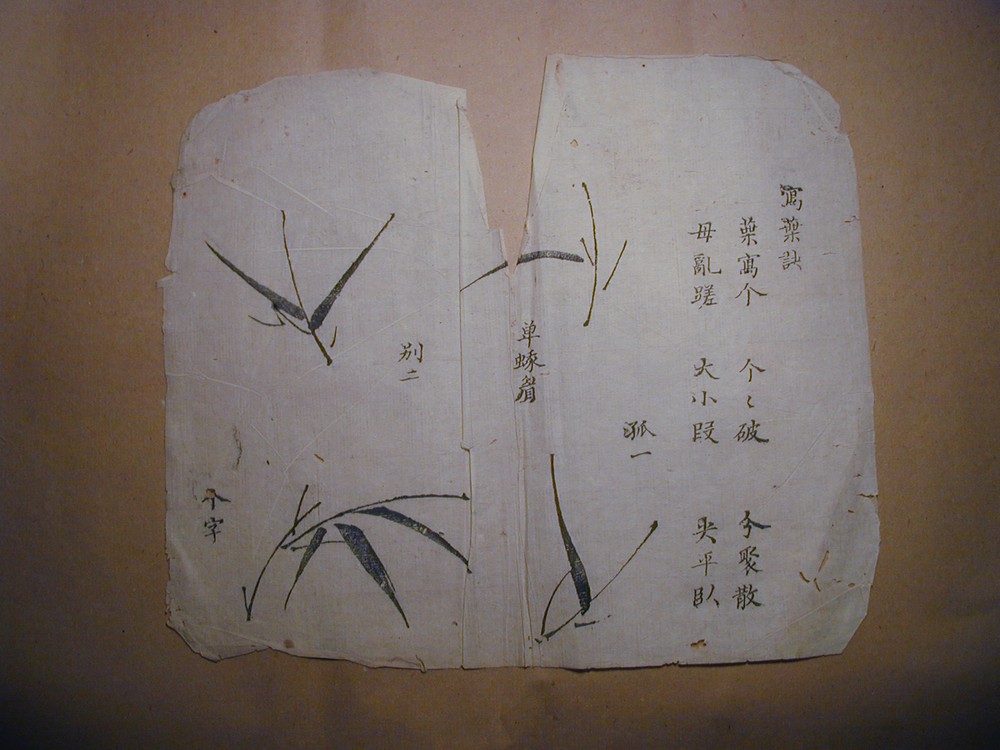 寫葉訣
葉寫个 个〻破 分聚散
毋亂蹉 大小段 尖平臥
孤一
单蛾眉
別二
个字